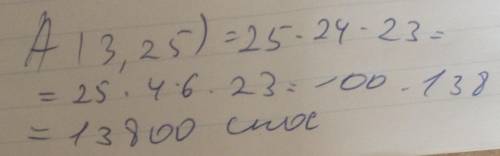 A(3,25) = 25 · 24 · 23 =
= 25 · 4 · 6 · 23 = 100 · 138
= 13800 спос